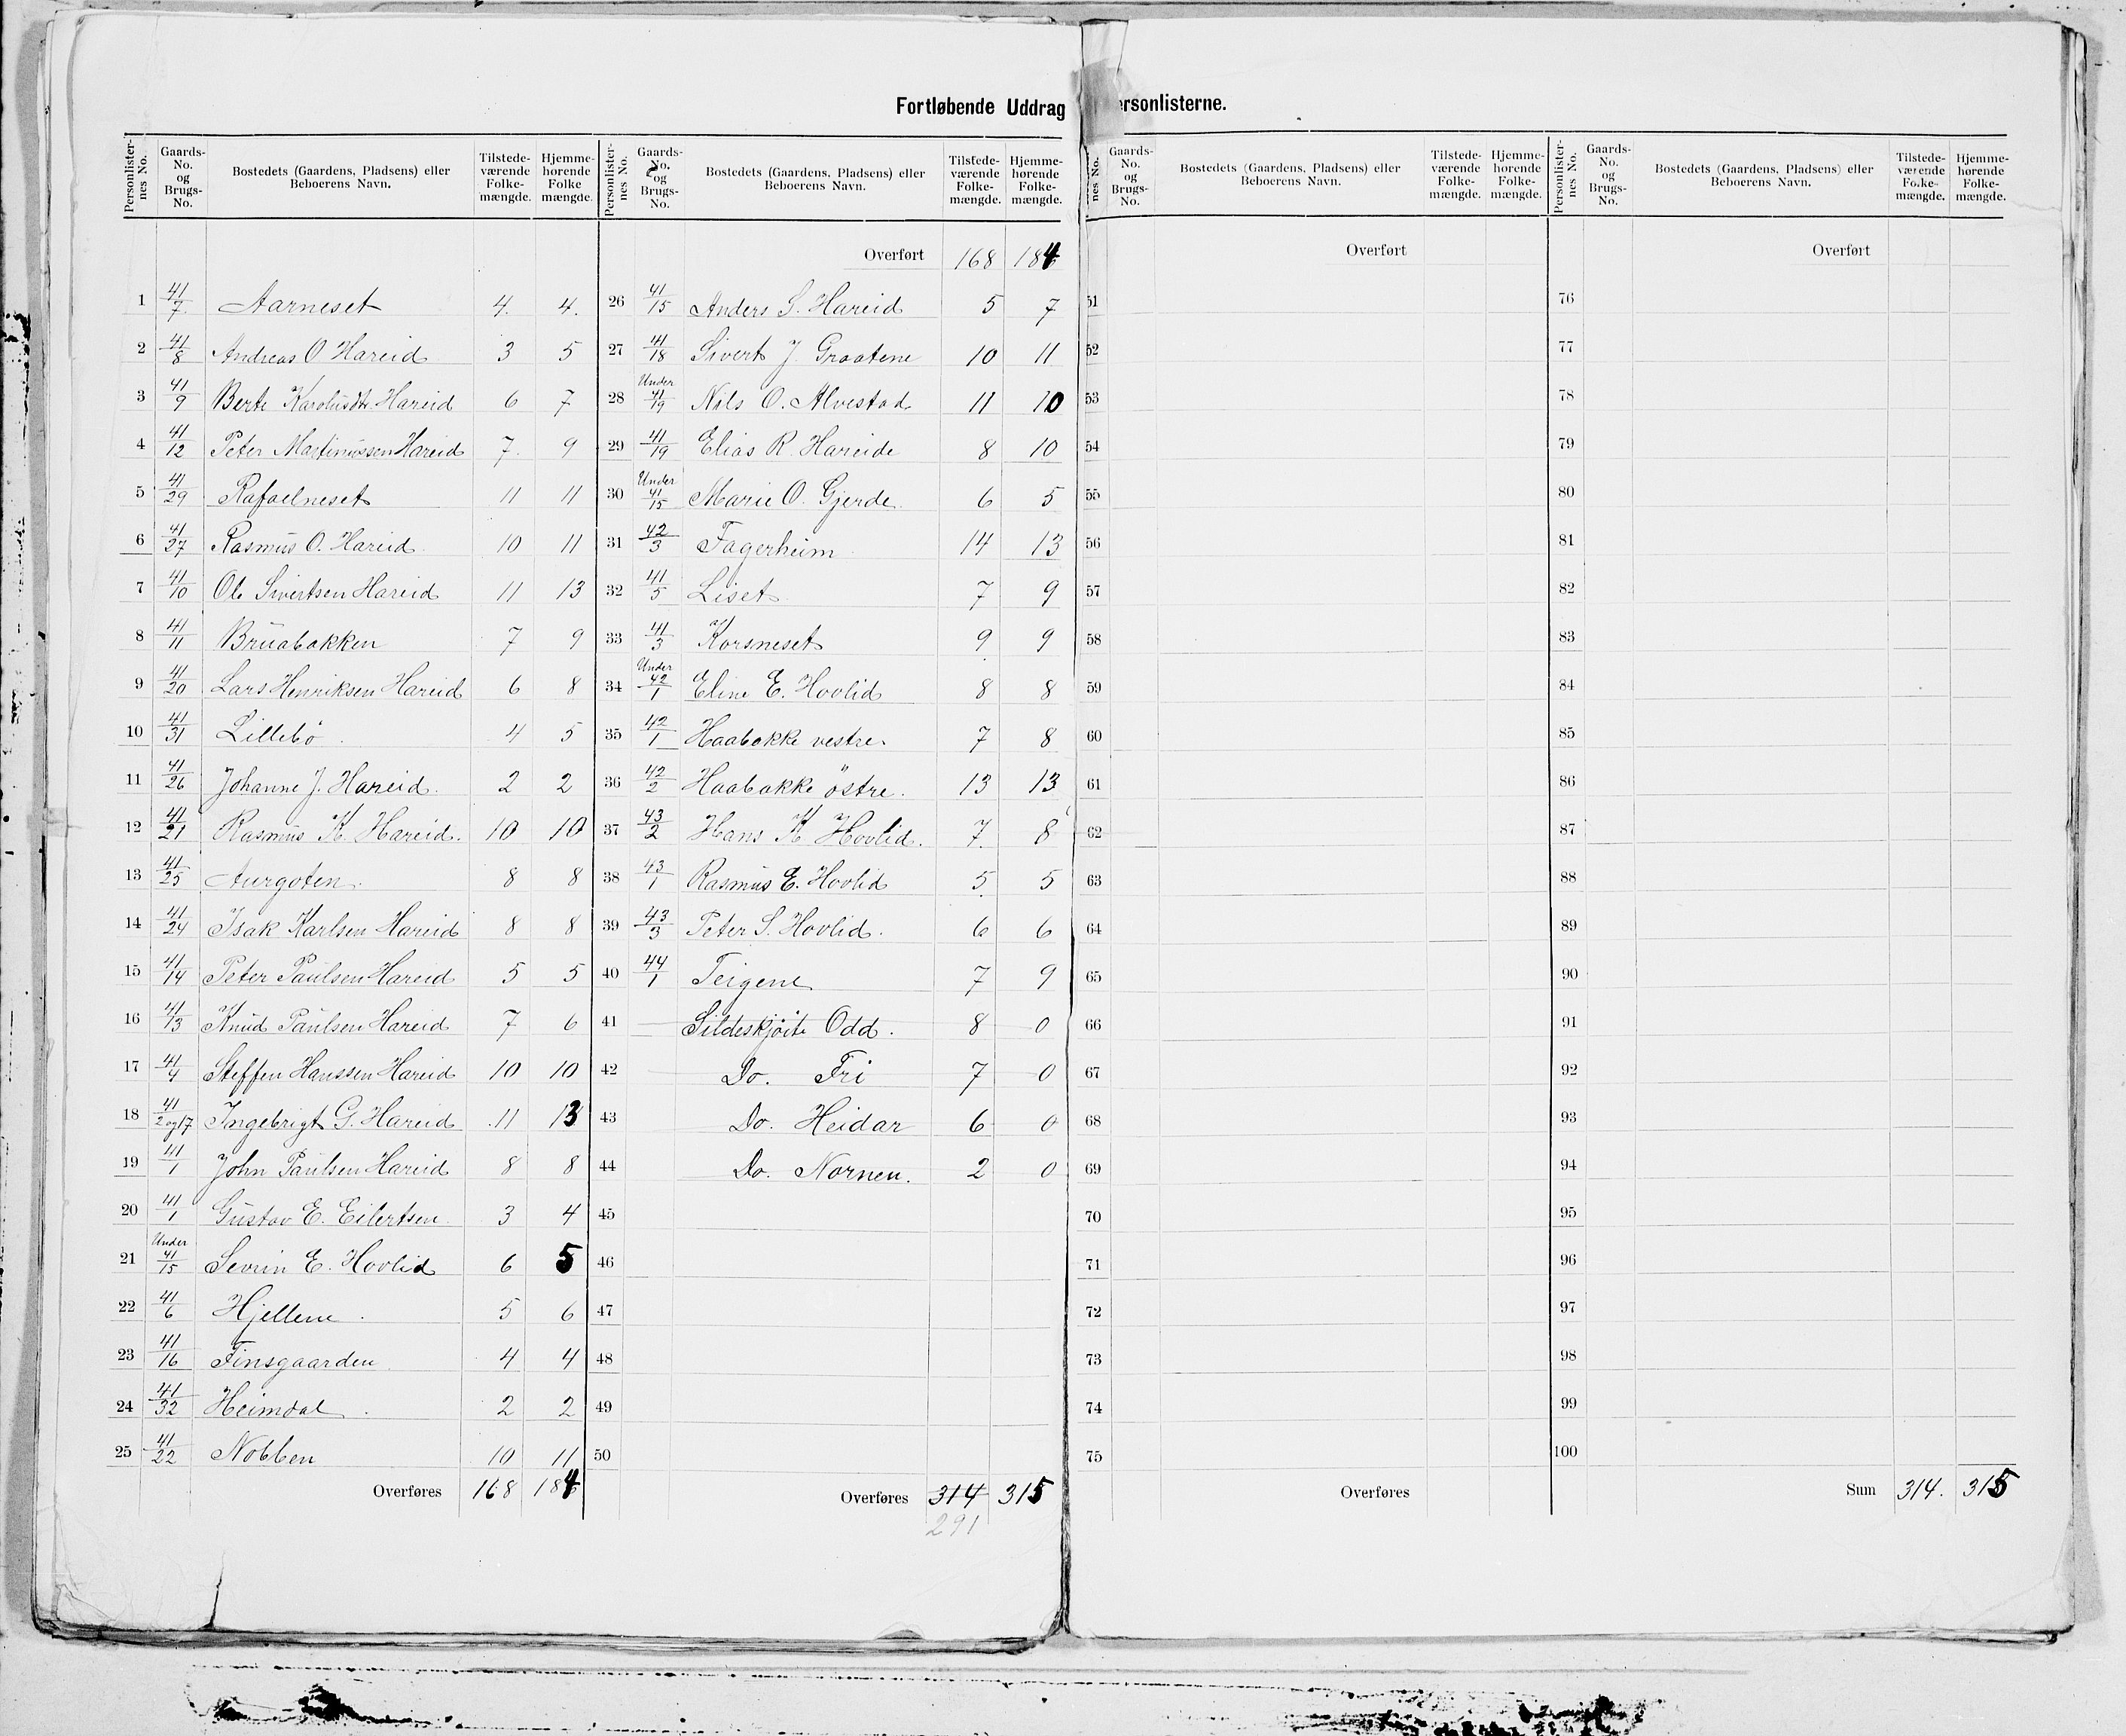 Fortløbende Uddrag ersonlisterne.
Personlister-nes No. Gaards-No. og Brugs-No. Bostedets (Gaardens, Pladsens) eller Beboerens Navn. Tilstede-værende Folke-mængde. Hjemme-hørende Folke mængde.
1 41/7 Aarneset 4. 4.
2 41/8 Andreas O Hareid 3 5
3 41/9 Berte Karolusdtr Hareid 6 7
4 41/12 Peter Martinussen Hareid 7. 9
5 41/29 Rafaelneset 11 11
6 41/27 Rasmus O. Hareid 10 11
7 41/10 Ole Sivertsen Hareid 11 13
8 41/11 Bruabakken 7 9
9 41/20 Lars Henriksen Hareid 6 8
10 41/31 Lillebö 4 5
11 41/26 Johanne J. Hareid. 2 2
12 41/21 Rasmus K. Hareid. 10 10
13 41/25 Aurgoten. 8 8
14 41/24 Isak Karlsen Hareid 8 8
15 41/14 Peter Paulsen Hareid 5 5
16 41/13 Knud Paulsen Hareid 7 6
17 41/4 Steffen Hanssen Hareid 10 10
18 41/2 og 17 Ingebrigt G. Hareid 11 13
19 41/1 John Paulsen Hareid 8 8
20 41/1 Gustav E. Eilertsen 3 4
21 Under 41/15 Sevrin E. Hovlid 6 5
22 41/6 Hjellene. 5 6
23 41/16 Finsgaarden. 4 4
24 41/32 Heimdal. 2 2
25 41/22 Nobben 10 11
Overføres 168 184
Personlister-nes No. Gaards-No. og Brugs-No. Bostedets (Gaardens, Pladsens) eller Beboerens Navn. Tilstede-værende Folke-mængde. Hjemme-hørende Folke-mængde.
Overført 168 184
26 41/15 Anders S. Hareid 5 7
27 41/18 Sivert J. Graatene 10 11
28 Under 41/19 Nils O. Alvestad 11 10
29 41/19 Elias R. Hareide 8 10
30 Under 41/15 Marie O. Gjerde. 6 5
31 42/3 Fagerheim 14 13
32 41/5 Liset 7 9
33 41/3 Korsneset 9 9
34 Under 42/1 Eline E. Hovlid 8 8
35 42/1 Haabakke vestre. 7 8
36 42/2 Haabakke östre. 13 13
37 43/2 Hans K Hovlid. 7. 8
38 43/1 Rasmus E. Hovlid 5 5
39 43/3 Peter S. Hovlid. 6 6
40 44/1 Teigene 7 9
41 Sildeskjöite Odd. 8 0
42 Do. Fri 7 0
43 Do. Heidar 6 0
44 Do. Nornen. 2 0
45
46
47
48
49
50
Overføres 314 315
291
nes No. Gaards-No. og Brugs-No. Bostedets (Gaardens, Pladsens) eller Beboerens Navn. Tilstede-værende Folke-mængde. Hjemme-hørende Folke-mængde.
Overført
51
52
53
54
55
56
57
58
59
60
61
62
63
64
65
66
67
68
69
70
71
72
73
74
75
Overføres
Personlister-nes No. Gaards-No. og Brugs-No. Bostedets (Gaardens, Pladsens) eller Beboerens Navn. Tilstede-værende Folke-mængde. Hjemme-hørende Folke-mængde.
Overført
76
77
78
79
80
81
82
83
84
85
86
87
88
89
90
91
92
93
94
95
96
97
98
99
100
Sum 314. 315